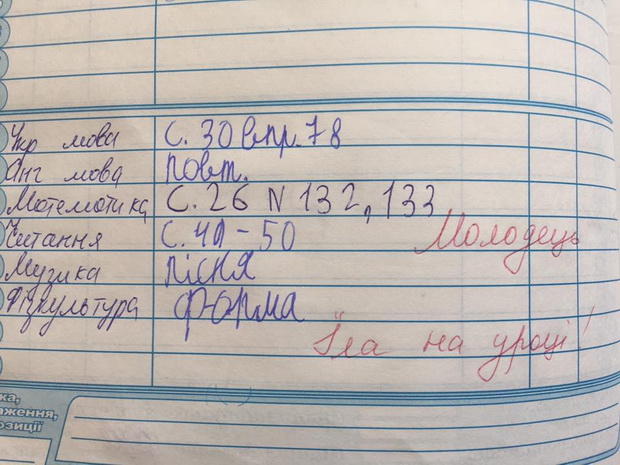 Укр мова с. 30 впр. 78
Анг мова повт.
Математика с. 26 N 132, 133
Читання с. 49-50 Молодець
Музика пісня
Фізкультура форма
Їла на уроці!
ка,
аження,
позиції